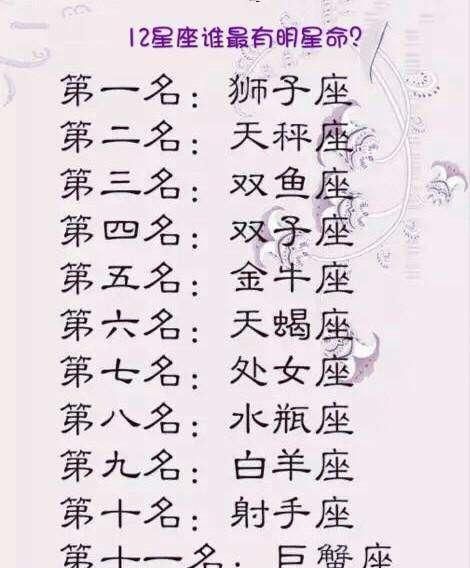 12星座谁最有明星命?
第一名：狮子座
第二名：天秤座
第三名：双鱼座
第四名：双子座
第五名：金牛座
第六名：天蝎座
第七名：处女座
第八名：水瓶座
第九名：白羊座
第十名：射手座
第十一名：巨蟹座